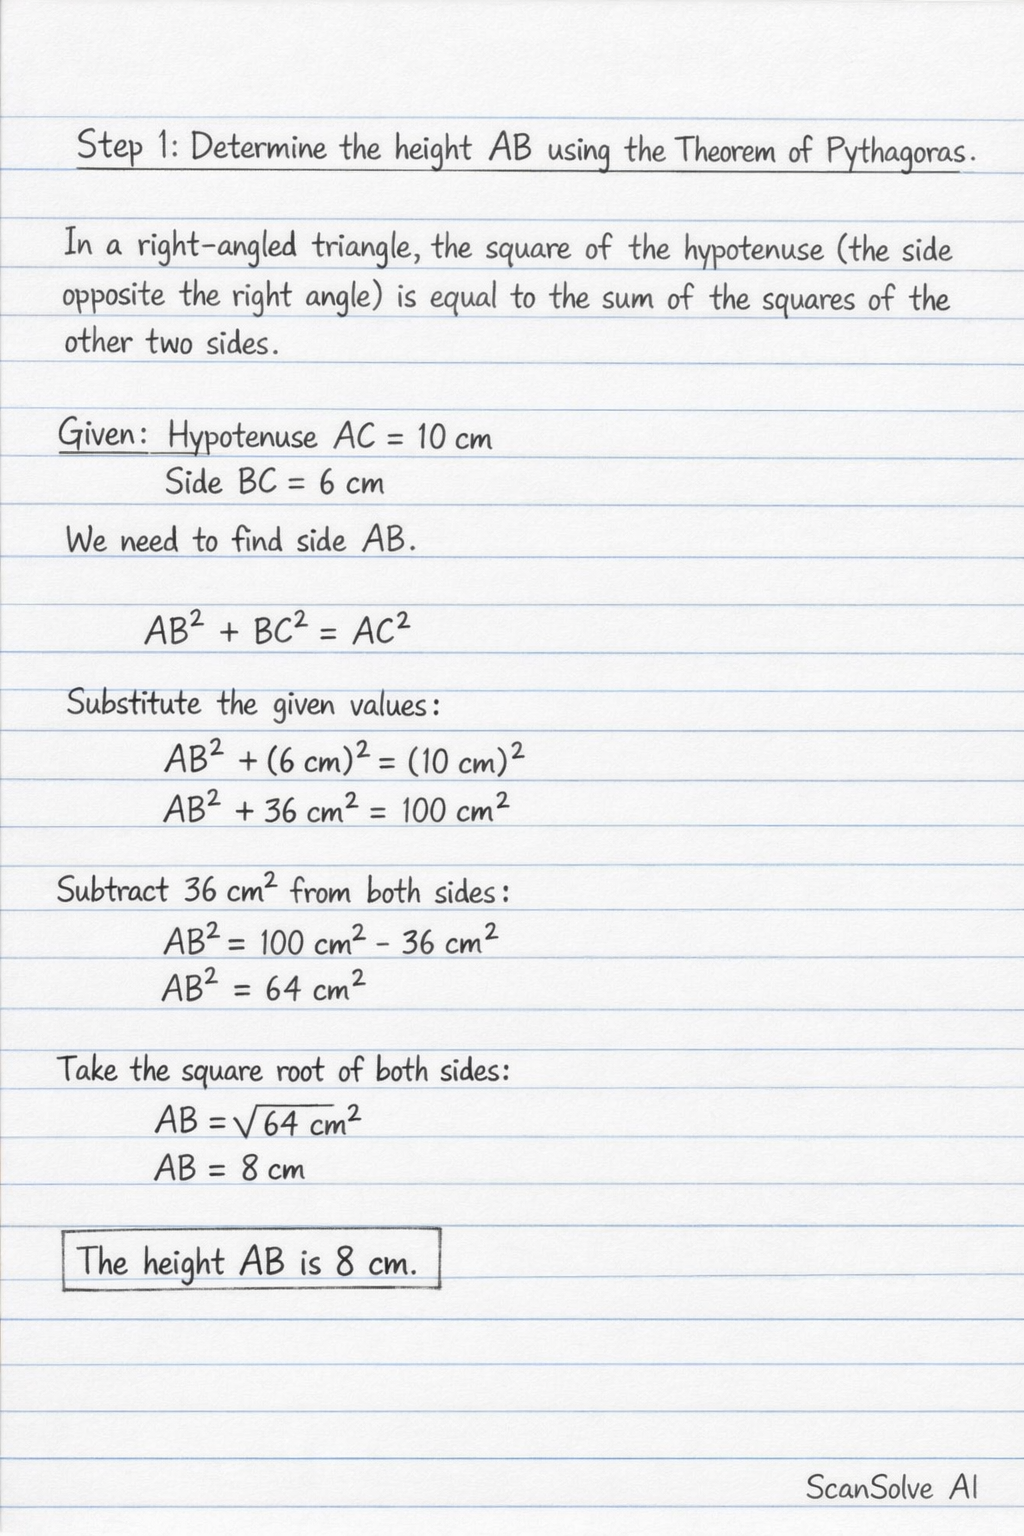 Step 1: Determine the height AB using the Theorem of Pythagoras.
In a right-angled triangle, the square of the hypotenuse (the side
opposite the right angle) is equal to the sum of the squares of the
other two sides.
Given: Hypotenuse AC = 10 cm
Side BC = 6 cm
We need to find side AB.
AB² + BC² = AC²
Substitute the given values:
AB² + (6 cm)² = (10 cm)²
AB² + 36 cm² = 100 cm²
Subtract 36 cm² from both sides:
AB² = 100 cm² - 36 cm²
AB² = 64 cm²
Take the square root of both sides:
AB = √64 cm²
AB = 8 cm
The height AB is 8 cm.
ScanSolve AI